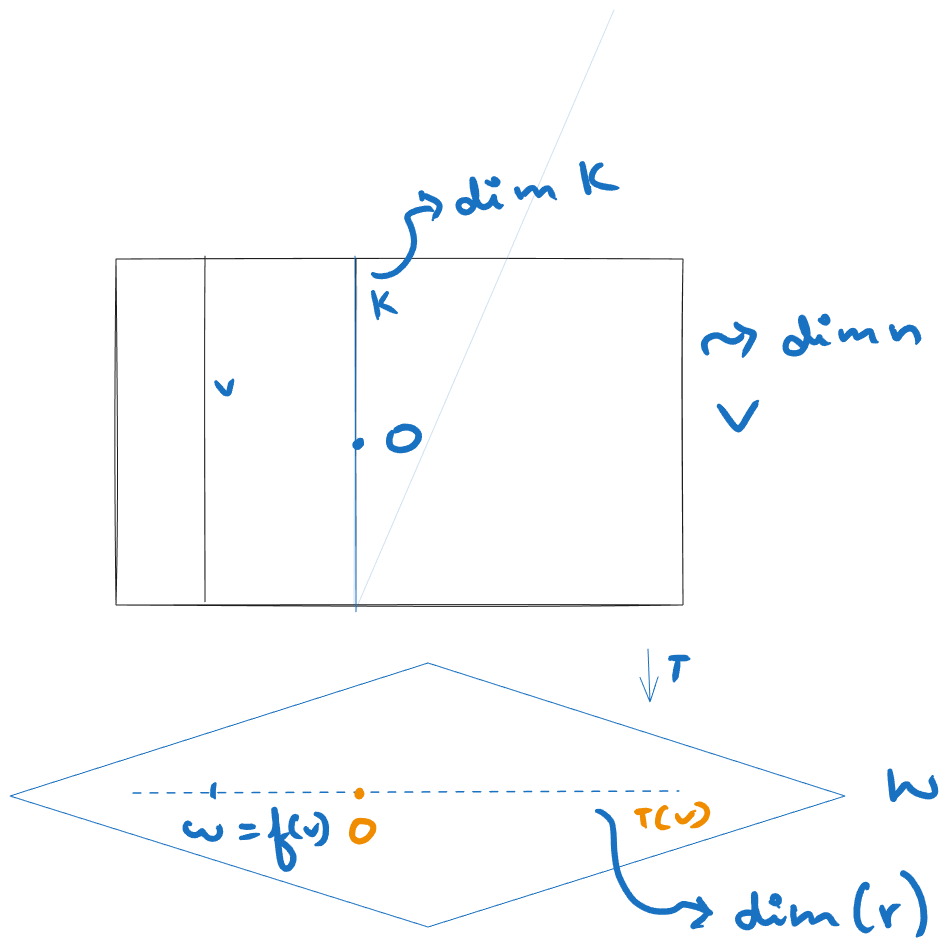 dim K
K
dim n
v
V
0
T
W
w = f(v)
0
T(v)
dim(r)